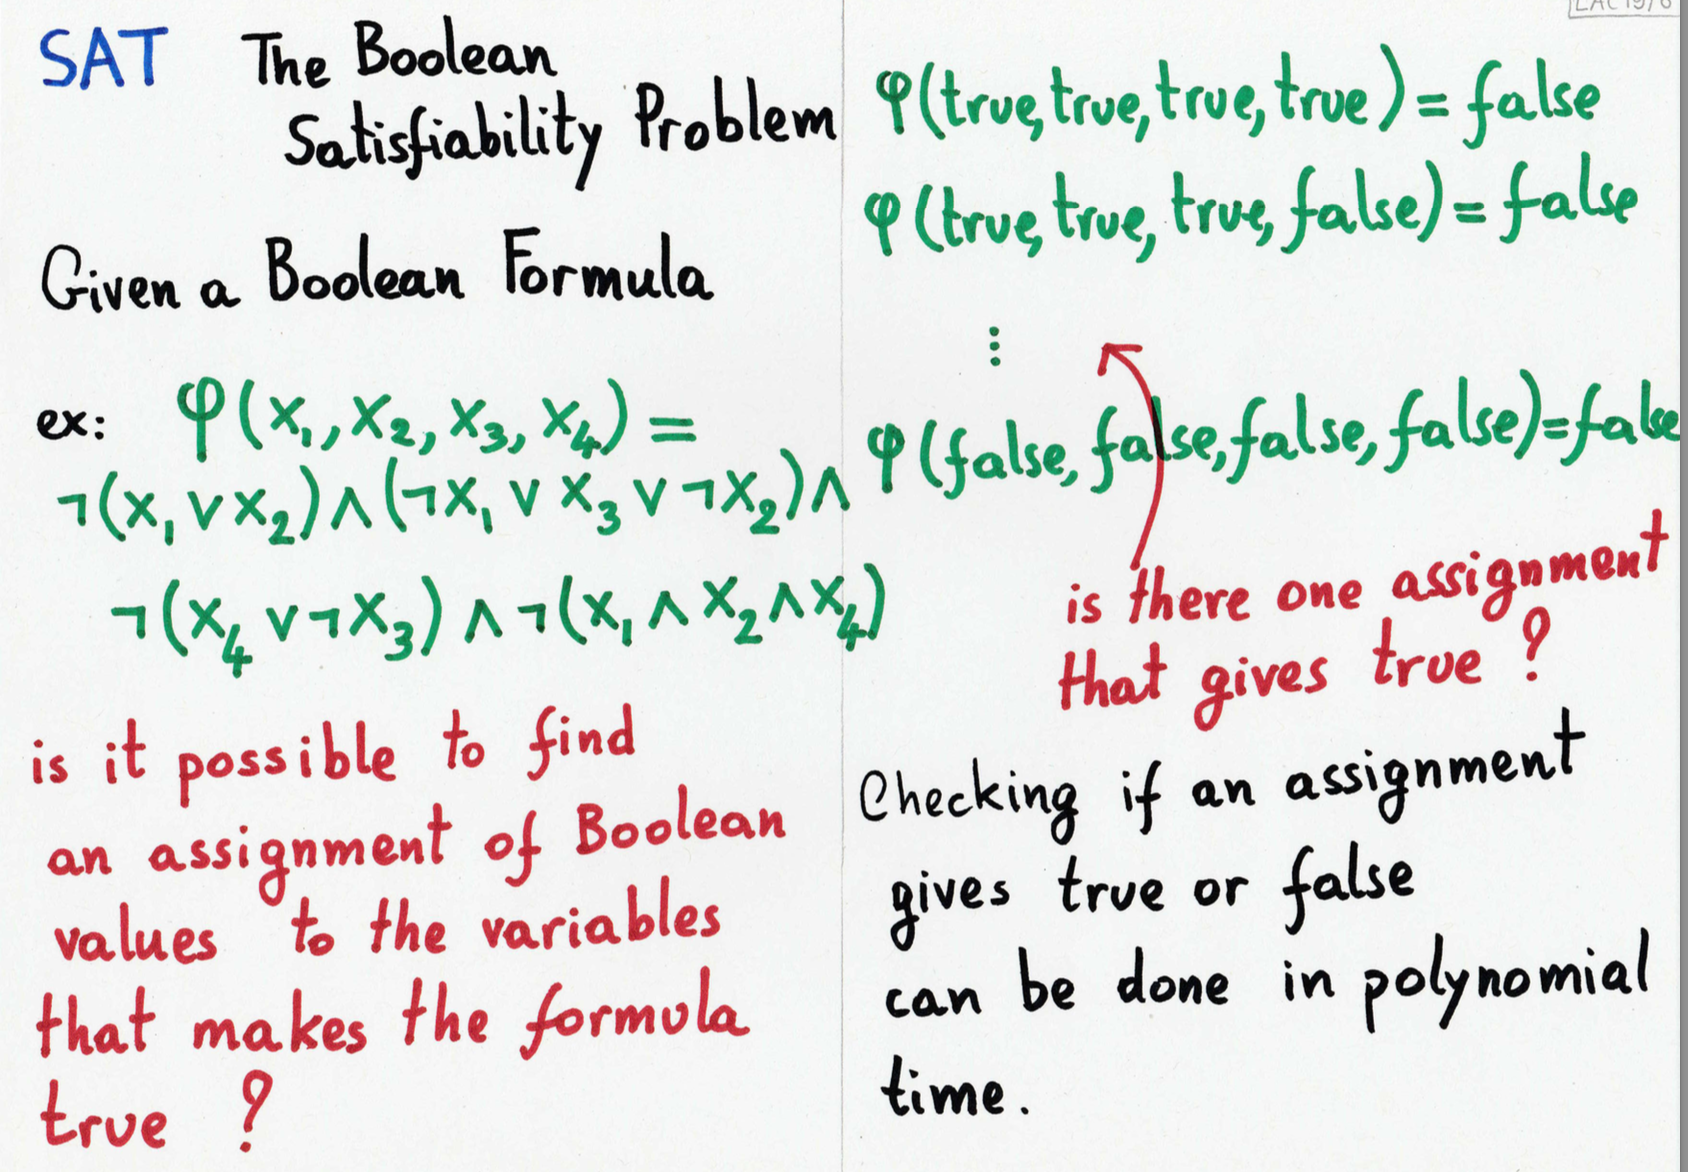 SAT The Boolean
Satisfiability Problem
Given a Boolean Formula
ex: φ(x₁, x₂, x₃, x₄) =
¬(x₁ ∨ x₂) ∧ (¬x₁ ∨ x₃ ∨ ¬x₂) ∧
¬(x₄ ∨ ¬x₃) ∧ ¬(x₁ ∧ x₂ ∧ x₄)
is it possible to find
an assignment of Boolean
values to the variables
that makes the formula
true ?
φ(true, true, true, true) = false
φ(true, true, true, false) = false
⋮
φ(false, false, false, false) = false
is there one assignment
that gives true ?
Checking if an assignment
gives true or false
can be done in polynomial
time.